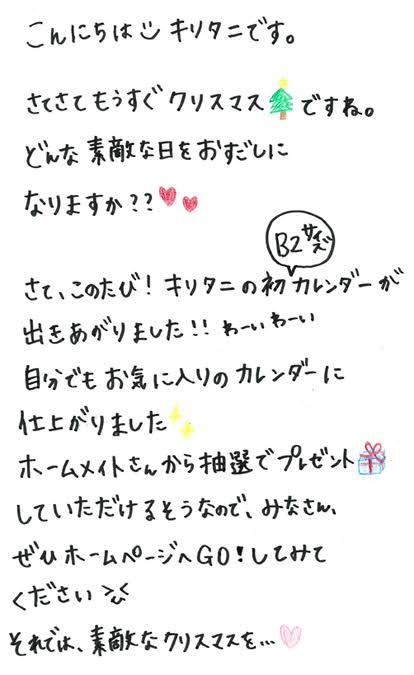 こんにちは キリタニです。
さてさてもうすぐクリスマスですね。
どんな素敵な日をおすごしに
なりますか??
B2サイズ
さて、このたび!キリタニの初カレンダーが
出きあがりました!!わーいわーい
自分でもお気に入りのカレンダーに
仕上がりました
ホームメイトさんから抽選でプレゼント
していただけるそうなので、みなさん、
ぜひホームページへGO!してみて
ください
それでは、素敵なクリスマスを…